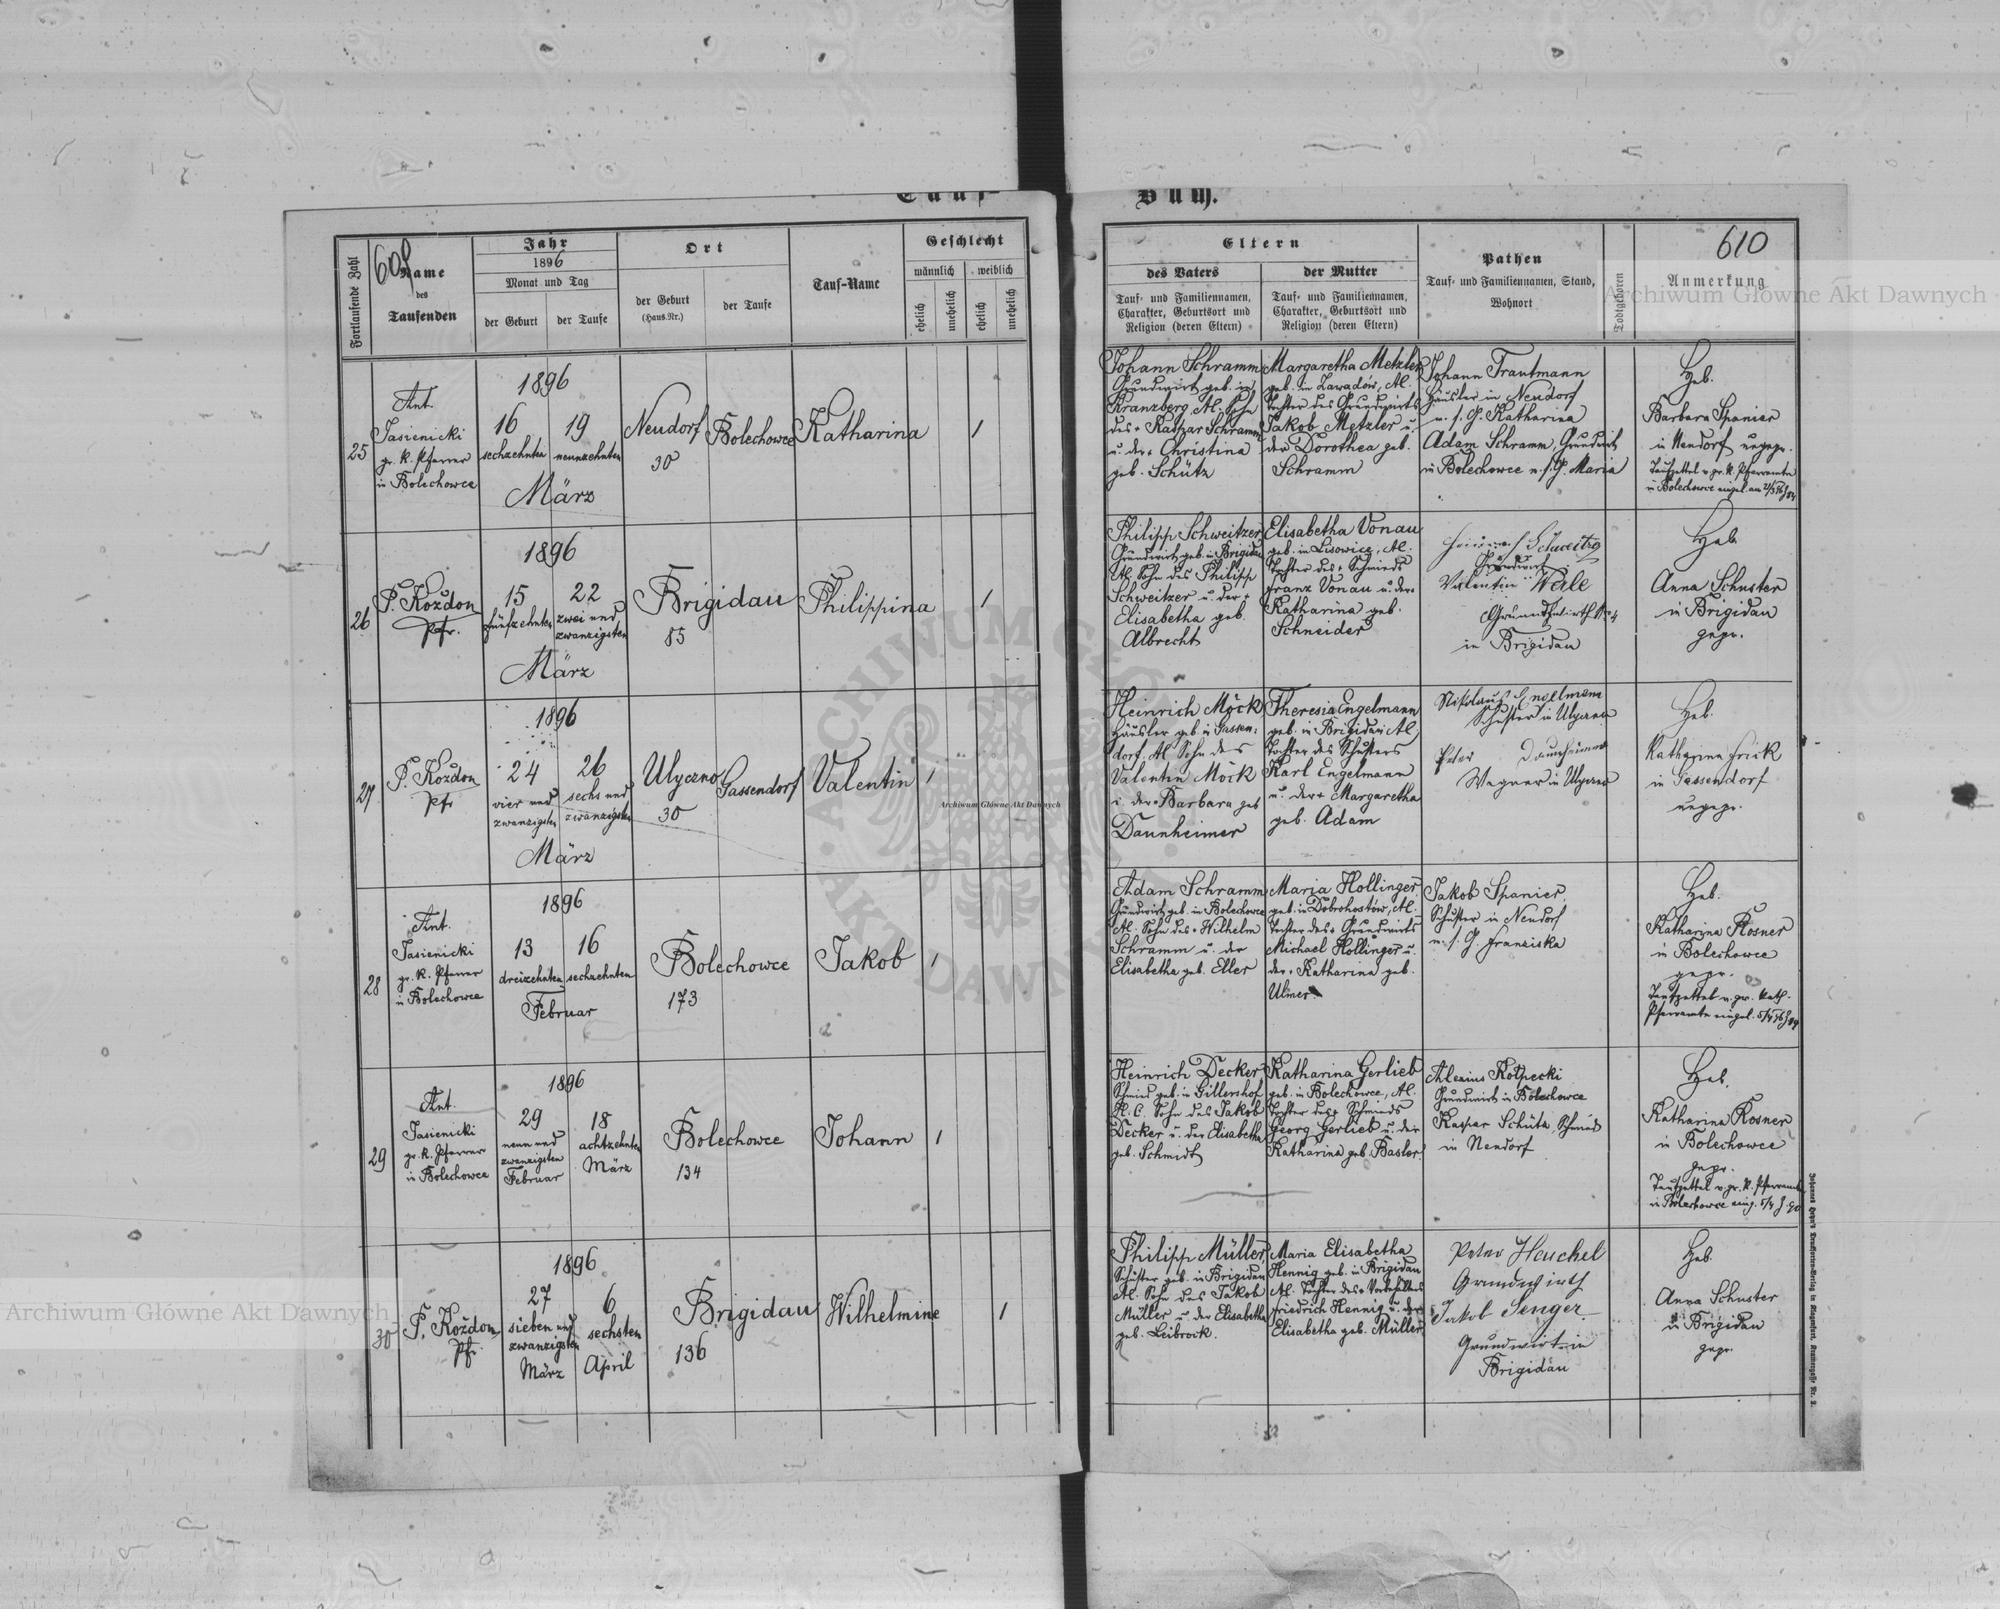 Tauf-
Buch.
609
Fortlaufende Zahl
Name
des
Taufenden
Jahr
1896
Monat und Tag
der Geburt
der Taufe
Ort
der Geburt
(Haus-Nr.)
der Taufe
Tauf-Name
Geschlecht
männlich
weiblich
ehelich
unehelich
ehelich
unehelich
25
Ant.
Jasienicki
gr. K. Pfarrer
in Bolechowce
1896
16
sechzehnten
19
neunzehnten
März
Neudorf
30
Bolechowce
Katharina
1
26
P. Kozdon
Pfr.
1896
15
fünfzehnten
22
zwei und
zwanzigsten
März
Brigidau
85
Philippina
1
27
P. Kozdon
Pfr
1896
24
vier und
zwanzigsten
26
sechs und
zwanzigsten
März
Ulyczno
30
Gassendorf
Valentin
1
28
Ant.
Jasienicki
gr. K. Pfarrer
in Bolechowce
1896
13
dreizehnten
16
sechzehnten
Februar
Bolechowce
173
Jakob
1
29
Ant.
Jasienicki
gr. K. Pfarrer
in Bolechowce
1896
29
neun und
zwanzigsten
Februar
18
achtzehnten
März
Bolechowce
134
Johann
1
30
P. Kozdon
Pfr.
1896
27
sieben und
zwanzigsten
März
6
sechsten
April
Brigidau
136
Wilhelmine
1
610
Eltern
des Vaters
Tauf- und Familiennamen,
Charakter, Geburtsort und
Religion (deren Eltern)
der Mutter
Tauf- und Familiennamen,
Charakter, Geburtsort und
Religion (deren Eltern)
Pathen
Tauf- und Familiennamen, Stand,
Wohnort
Todtgeboren
Anmerkung
Johann Schramm
Grundwirt geb. in
Kranzberg, Al. Sohn
des + Kaspar Schramm
u. der + Christina
geb. Schütz
Margaretha Metzler
geb. in Zawadów, Al.
Tochter des Grundwirts
Jakob Metzler u.
der Dorothea geb.
Schramm
Johann Trautmann
Häusler in Neudorf
u. s. G. Katharina
Adam Schramm, Grundwirt
in Bolechowce u. s. G. Maria
Heb.
Barbara Spanier
in Neudorf ungepr.
Taufzettel v. gr. K. Pfarramte
in Bolechowce eingel. am
Philipp Schweitzer
Grundwirt geb. in Brigidau
Al. Sohn des Philipp
Schweitzer u. der +
Elisabetha geb.
Albrecht
Elisabetha Vonau
geb. in Lisowice, Al.
Tochter des + Schmieds
Franz Vonau u. der +
Katharina geb.
Schneider
Schweitzer
Valentin
in Brigidau
Heb
Anna Schuster
in Brigidau
gepr.
Heinrich Möck
Häusler geb. in Gassen-
dorf, Al. Sohn des
Valentin Möck
u. der + Barbara geb
Dannheimer
Theresia Engelmann
geb. in Brigidau Al.
Tochter des Schusters
Karl Engelmann
u. der + Margaretha
geb. Adam
Nikolaus Engelmann
Schuster in Ulyczno
Peter Dannheimer
Wagner in Ulyczno
Heb.
Katharina Frick
in Gassendorf
ungepr.
Adam Schramm
Grundwirt geb. in Bolechowce
Al. Sohn des + Wilhelm
Schramm u. der
Elisabetha geb. Eller
Maria Hollinger
geb. in Dobrohostów, Al.
Tochter des + Grundwirts
Michael Hollinger u.
der + Katharina geb.
Ulmer
Jakob Spanier,
Schuster in Neudorf
u. s. G. Franziska
Heb.
Katharina Kosner
in Bolechowce
gepr.
Taufzettel v. gr. kath.
Pfarramte eingel.
Heinrich Decker
Schmied geb. in Gillershof
H. C. Sohn des Jakob
Decker u. der Elisabetha
geb. Schmidt
Katharina Gerlieb
geb. in Bolechowce, Al.
Tochter des + Schmieds
Georg Gerlieb u. der
Katharina geb. Basler
Alexius Kotpecki
Grundwirt in Bolechowce
Kaspar Schütz, Schmied
in Neudorf
Heb.
Katharina Kosner
in Bolechowce
gepr.
Taufzettel v. gr. K. Pfarramte
in Bolechowce eing.
Philipp Müller
Schuster geb. in Brigidau
Al. Sohn des Jakob
Müller u. der Elisabetha
geb. Leibrock.
Maria Elisabetha
Hennig geb. in Brigidau
Al. Tochter des +
Friedrich Hennig u. der
Elisabetha geb. Müller
Peter Heuchel
Grundwirth
Jakob Senger
Grundwirt in
Brigidau
Heb
Anna Schuster
in Brigidau
gepr.
Archiwum Główne Akt Dawnych
Archiwum Główne Akt Dawnych
Archiwum Główne Akt Dawnych
ARCHIWUM GŁÓWNE
AKT DAWNYCH